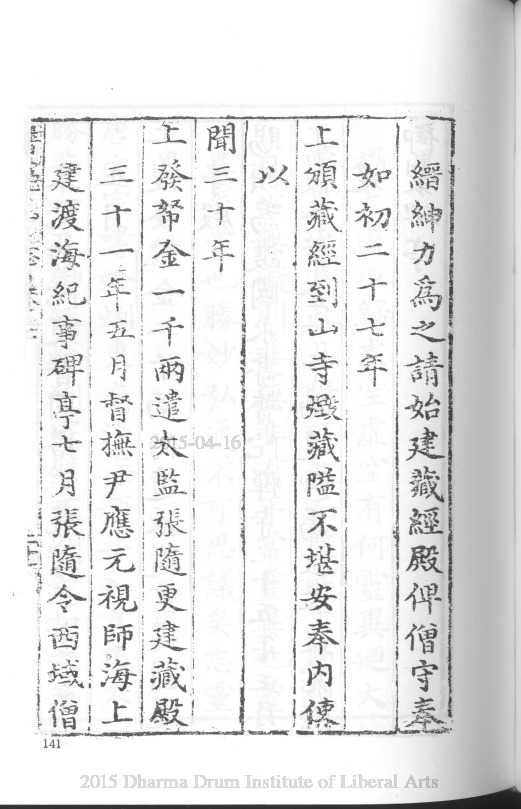 縉紳力為之請始建藏經殿俾僧守奉
如初二十七年
上頒藏經到山寺燬藏隘不堪安奉內使
以
聞三十年
上發帑金一千兩遣太監張隨更建藏殿
三十一年五月督撫尹應元視師海上
建渡海紀事碑亭七月張隨令西域僧
141
2015-04-16
2015 Dharma Drum Institute of Liberal Arts